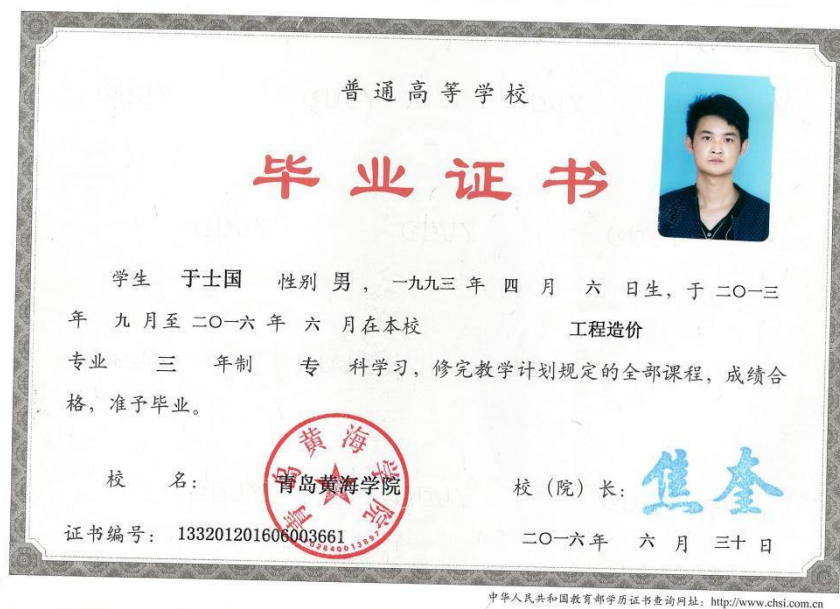 普通高等学校
毕业证书
学生 于士国 性别 男 ，一九九三 年 四 月 六 日生，于 二〇一三
年 九 月至 二〇一六 年 六 月在本校 工程造价
专业 三 年制 专 科学习，修完教学计划规定的全部课程，成绩合
格，准予毕业。
校 名： 青岛黄海学院
青岛黄海学院
校（院）长： 焦奎
证书编号： 133201201606003661
二〇一六年 六 月 三十 日
中华人民共和国教育部学历证书查询网址：http://www.chsi.com.cn